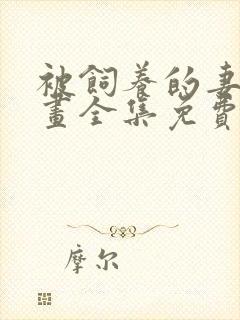 被飼養的妻
畫全集免費
摩尔